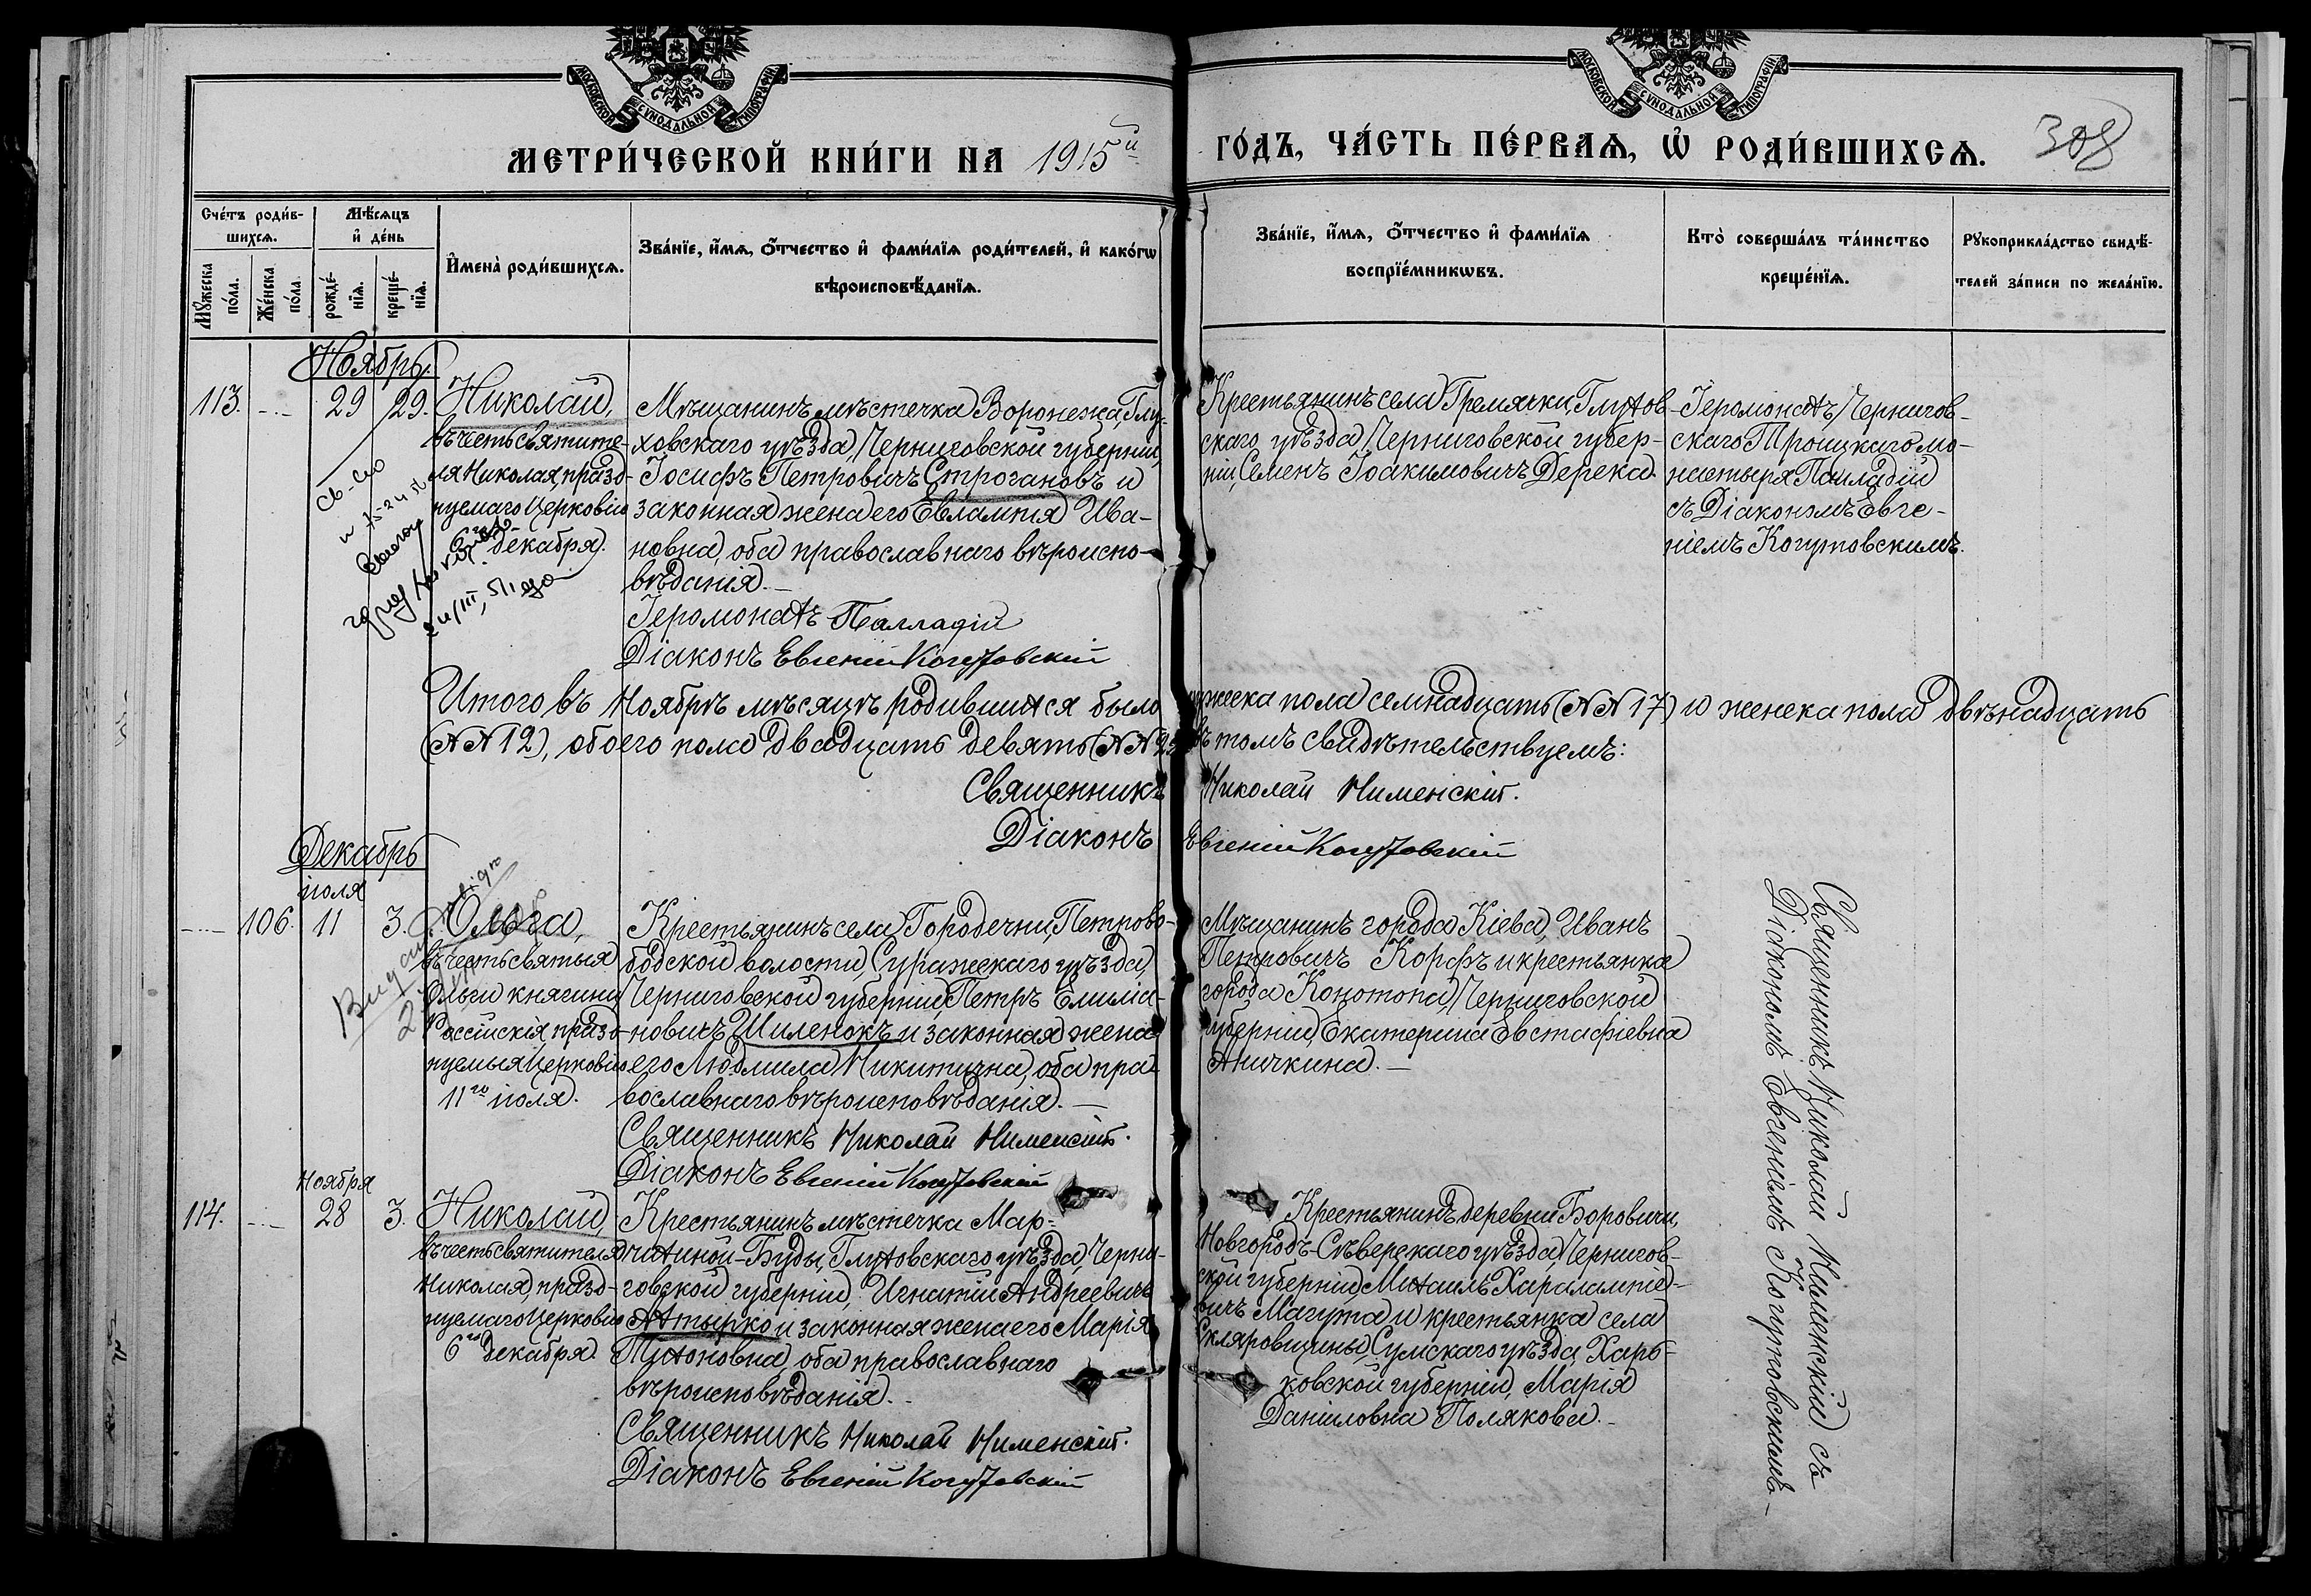 МОСКОВСКОЙ СѴНОДАЛЬНОЙ ТИПОГРАФІИ
МОСКОВСКОЙ СѴНОДАЛЬНОЙ ТИПОГРАФІИ
МЕТРИ́ЧЕСКОЙ КНИ́ГИ НА 1915й
ГО́ДЪ, ЧА́СТЬ ПЕ́РВАѦ, Ѡ҆ РОДИ́ВШИХСѦ.
308
Сче́тъ роди́в-
шихсѧ.
Мѣ́сѧцъ
и҆ де́нь
Мꙋ́жеска
по́ла.
Же́нска
по́ла.
рожде́-
нїѧ.
креще́-
нїѧ.
И҆мена̀ роди́вшихсѧ.
Зва́нїе, и҆́мѧ, ѻ҆́тчество и҆ фами́лїѧ роди́телей, и҆ како́гѡ
вѣроисповѣ́данїѧ.
Зва́нїе, и҆́мѧ, ѻ҆́тчество и҆ фами́лїѧ
воспрїе́мникѡвъ.
Кто̀ соверша́лъ та́инство
креще́нїѧ.
Рꙋкоприкла́дство свидѣ́-
телей за́писи по жела́нїю.
Ноябрь.
113. - - 29 29. Николай,
въ честь святите-
ля Николая, празд-
нуемаго Церковію
6го декабря.
Мѣщанинъ мѣстечка Воронежа, Глу-
ховскаго уѣзда, Черниговской губерніи,
Іосифъ Петровичъ Строгановъ и
законная жена его Евлампія Ива-
новна, оба православнаго вѣроиспо-
вѣданія. —
Іеромонахъ Палладій
Діаконъ Евгеній Когутовскій
Крестьянинъ села Гремячки, Глухов-
скаго уѣзда, Черниговской губер-
ніи, Семенъ Іоакимовичъ Дерека.
Іеромонахъ Чернигов-
скаго Троицкаго мо-
настыря Палладій
съ Діакономъ Евге-
ніемъ Когутовскимъ.
Итого въ Ноябрѣ мѣсяцѣ родившихся было мужеска пола семнадцать (NN 17) и женска пола двѣнадцать
(NN 12), обоего пола двадцать девять (NN 29) въ томъ свидѣтельствуемъ:
Священникъ Николай Нименскій.
Діаконъ Евгеній Когутовскій
Декабрь
іюля
- - 106. 11 3. Ольга,
въ честь святыя
Ольги княгини
Россійскія, празд-
нуемыя Церковію
11го іюля.
Крестьянинъ села Городечни, Петрово-
бодской волости, Суражскаго уѣзда,
Черниговской губерніи, Петръ Емиліа-
новичъ Шиленокъ и законная жена
его Людмила Никитична, оба пра-
вославнаго вѣроисповѣданія. —
Священникъ Николай Нименскій.
Діаконъ Евгеній Когутовскій
Мѣщанинъ города Кіева, Иванъ
Петровичъ Корфъ и крестьянка
города Конотопа, Черниговской
губерніи, Екатерина Евстафіевна
Аничкина. —
Ноября
114. - - 28 3. Николай,
въ честь святителя
Николая, празд-
нуемаго Церковію
6го декабря.
Крестьянинъ мѣстечка Мар-
чихиной-Буды, Глуховскаго уѣзда, Черни-
говской губерніи, Игнатій Андреевичъ
Ахтырко и законная жена его Марія
Тихоновна, оба православнаго
вѣроисповѣданія. -
Священникъ Николай Нименскій.
Діаконъ Евгеній Когутовскій
Крестьянинъ деревни Боровичи,
Новгородъ-Сѣверскаго уѣзда, Чернигов-
ской губерніи, Михаилъ Харалампіе-
вичъ Магута и крестьянка села
Скляровщины, Сумскаго уѣзда, Харь-
ковской губерніи, Марія
Даніиловна Полякова. -
Священникъ Николай Нименскій съ
Діакономъ Евгеніемъ Когутовскимъ —